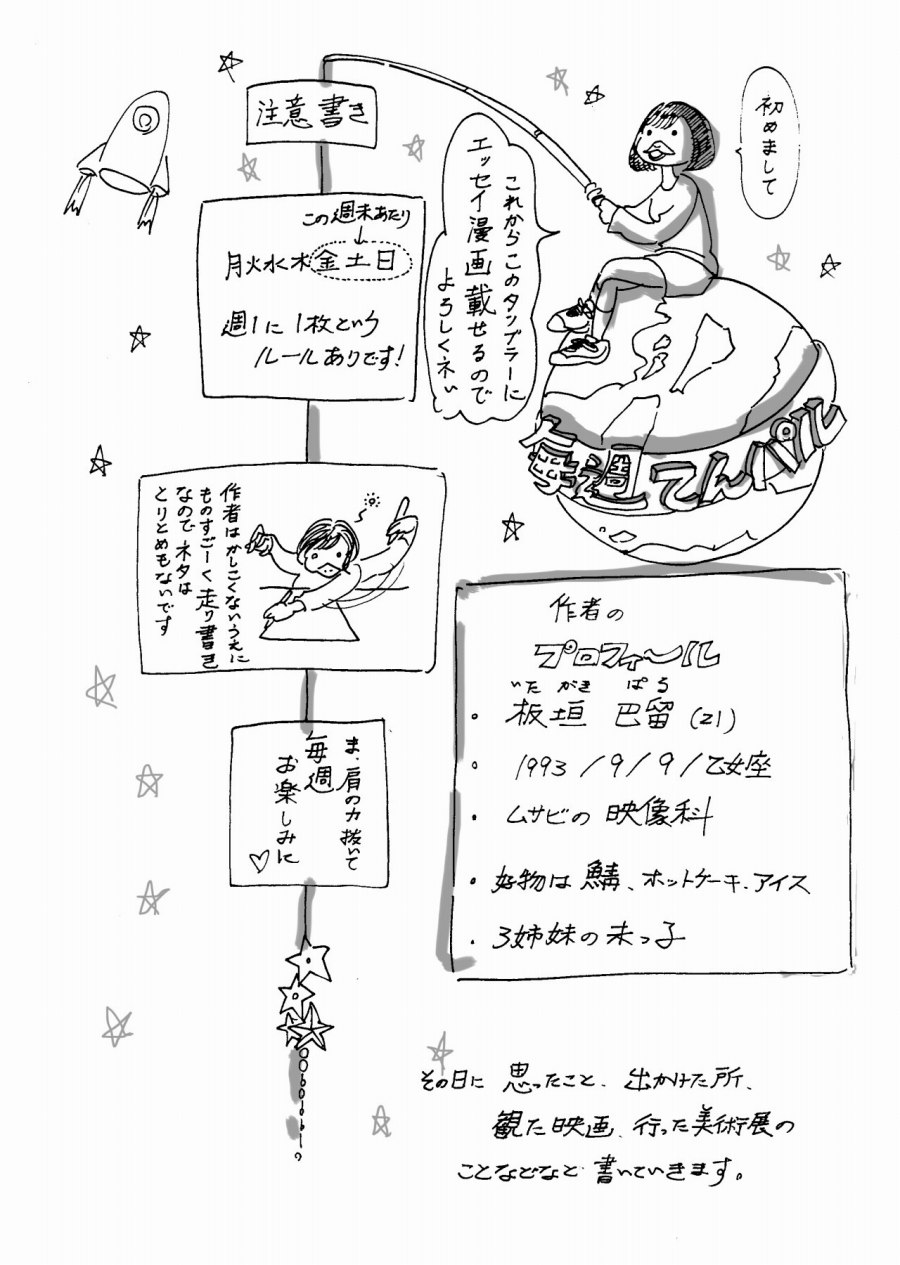 初めまして
これからこのタンブラーに
エッセイ漫画載せるので
よろしくネ
毎週てんパル
注意書き
この週末あたり
↓
月火水木金土日
週1に1枚という
ルールありです!
作者はかしこくないうえに
ものすごーく走り書き
なので ネタは
とりとめもないです
ま、肩の力抜いて
毎週
お楽しみに
♡
作者の
プロフィ〜ル
いた がき ぱる
・板垣 巴留 (21)
・1993/9/9/乙女座
・ムサビの映像科
・好物は鯖、ホットケーキ、アイス
・3姉妹の末っ子
その日に 思ったこと、出かけた所、
観た映画、行った美術展の
ことなどなど 書いていきます。